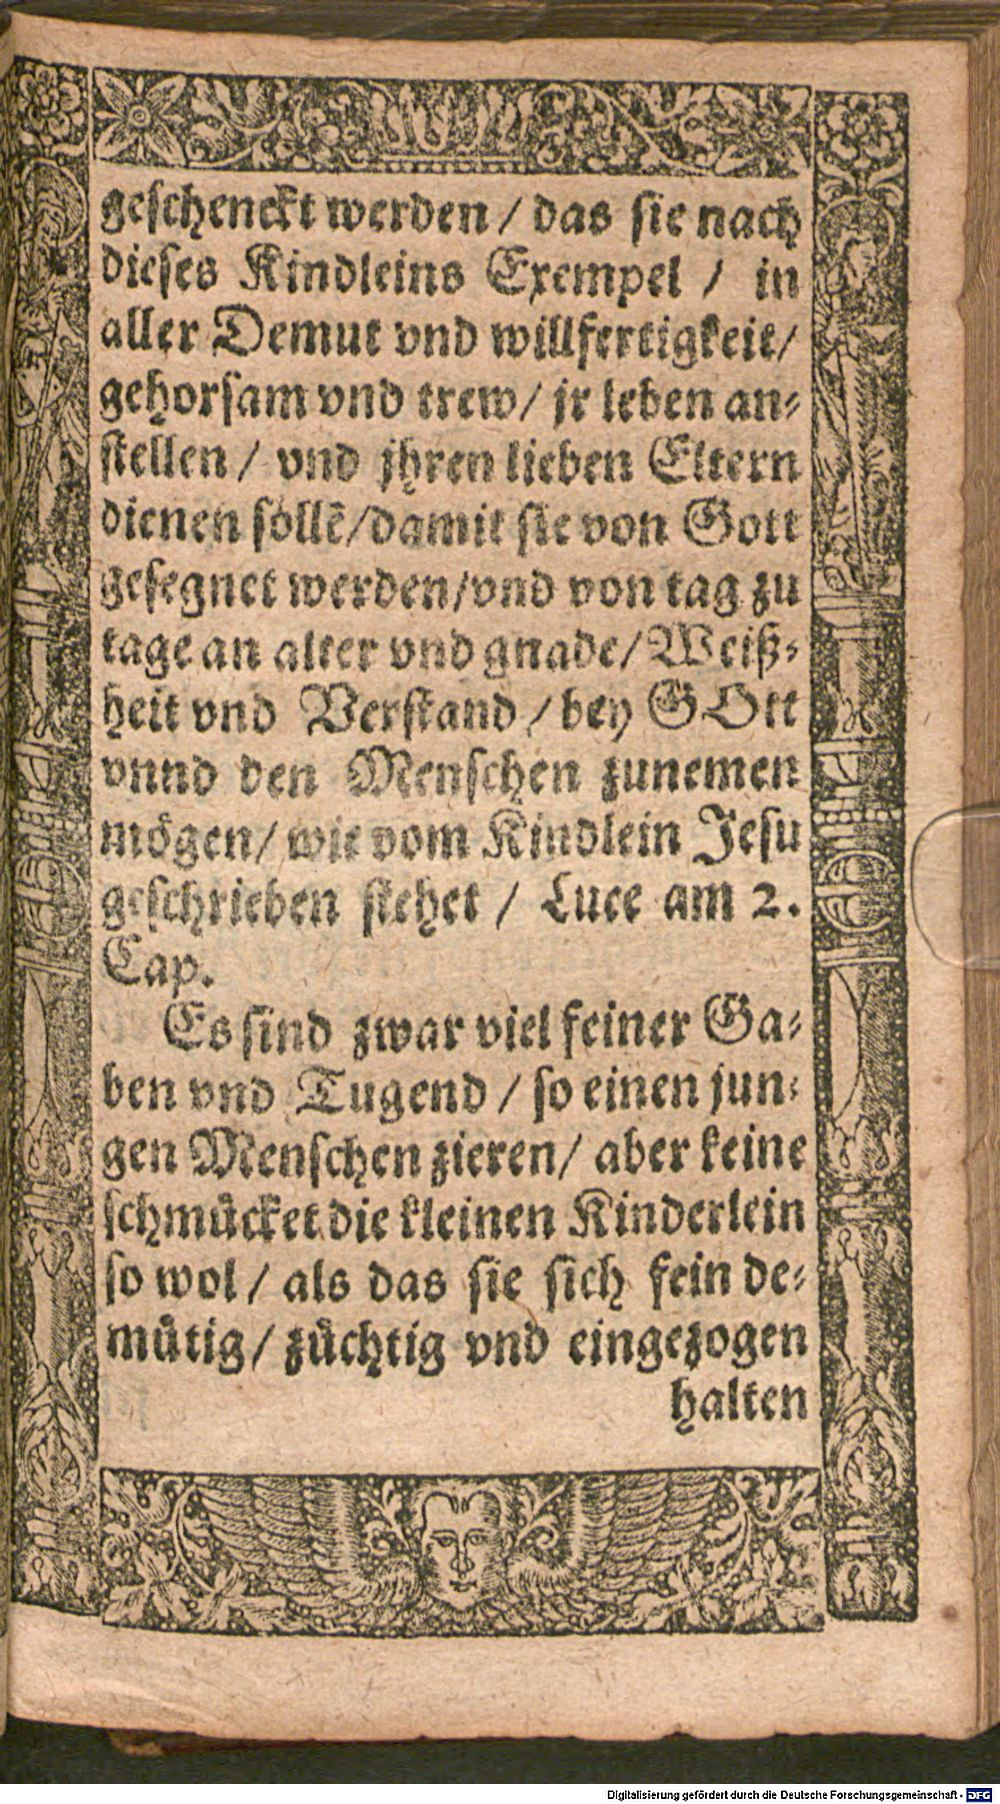 geschenckt werden / das sie nach
dieses Kindleins Exempel / in
aller Demut vnd willfertigkeit /
gehorsam vnd trew / jr leben an-
stellen / vnd jhren lieben Eltern
dienen sollē / damit sie von Gott
gesegnet werden / vnd von tag zu
tage an alter vnd gnade / Weiß-
heit vnd Verstand / bey GOtt
vnnd den Menschen zunemen
mögen / wie vom Kindlein Jesu
geschrieben stehet / Luce am 2.
Cap.
Es sind zwar viel feiner Ga-
ben vnd Tugend / so einen jun-
gen Menschen zieren / aber keine
schmücket die kleinen Kinderlein
so wol / als das sie sich fein de-
mütig / züchtig vnd eingezogen
halten
Digitalisierung gefördert durch die Deutsche Forschungsgemeinschaft - DFG